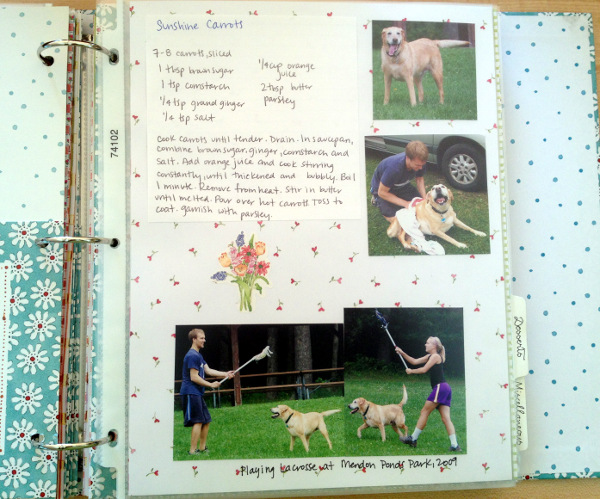 Sunshine Carrots
7-8 carrots, sliced
1 tbsp brown sugar
1 tsp cornstarch
1/4 tsp ground ginger
1/4 tsp salt
1/4 cup orange
juice
2 tbsp butter
parsley
Cook carrots until tender. Drain. In saucepan,
combine brown sugar, ginger, cornstarch and
salt. Add orange juice and cook stirring
constantly, until thickened and bubbly. Boil
1 minute. Remove from heat. Stir in butter
until melted. Pour over hot carrots. Toss to
coat. garnish with parsley.
74102
Playing Lacrosse at Mendon Ponds Park, 2009
Desserts
Miscellaneous